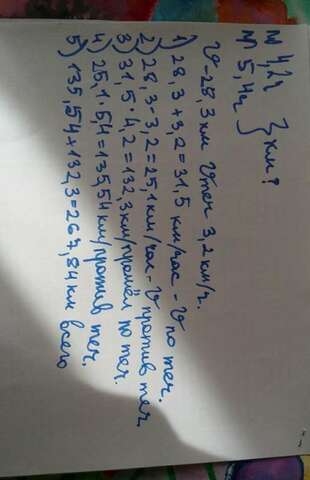 4,2ч
5,4ч } км?
V-28,3 км Vтеч 3,2 км/ч.
1) 28,3+3,2=31,5 км/час - V по теч.
2) 28,3-3,2=25,1 км/час - V против теч
3) 31,5·4,2=132,3 км/прошёл по теч.
4) 25,1·5,4=135,54 км/против теч.
5) 135,54+132,3=267,84 км всего